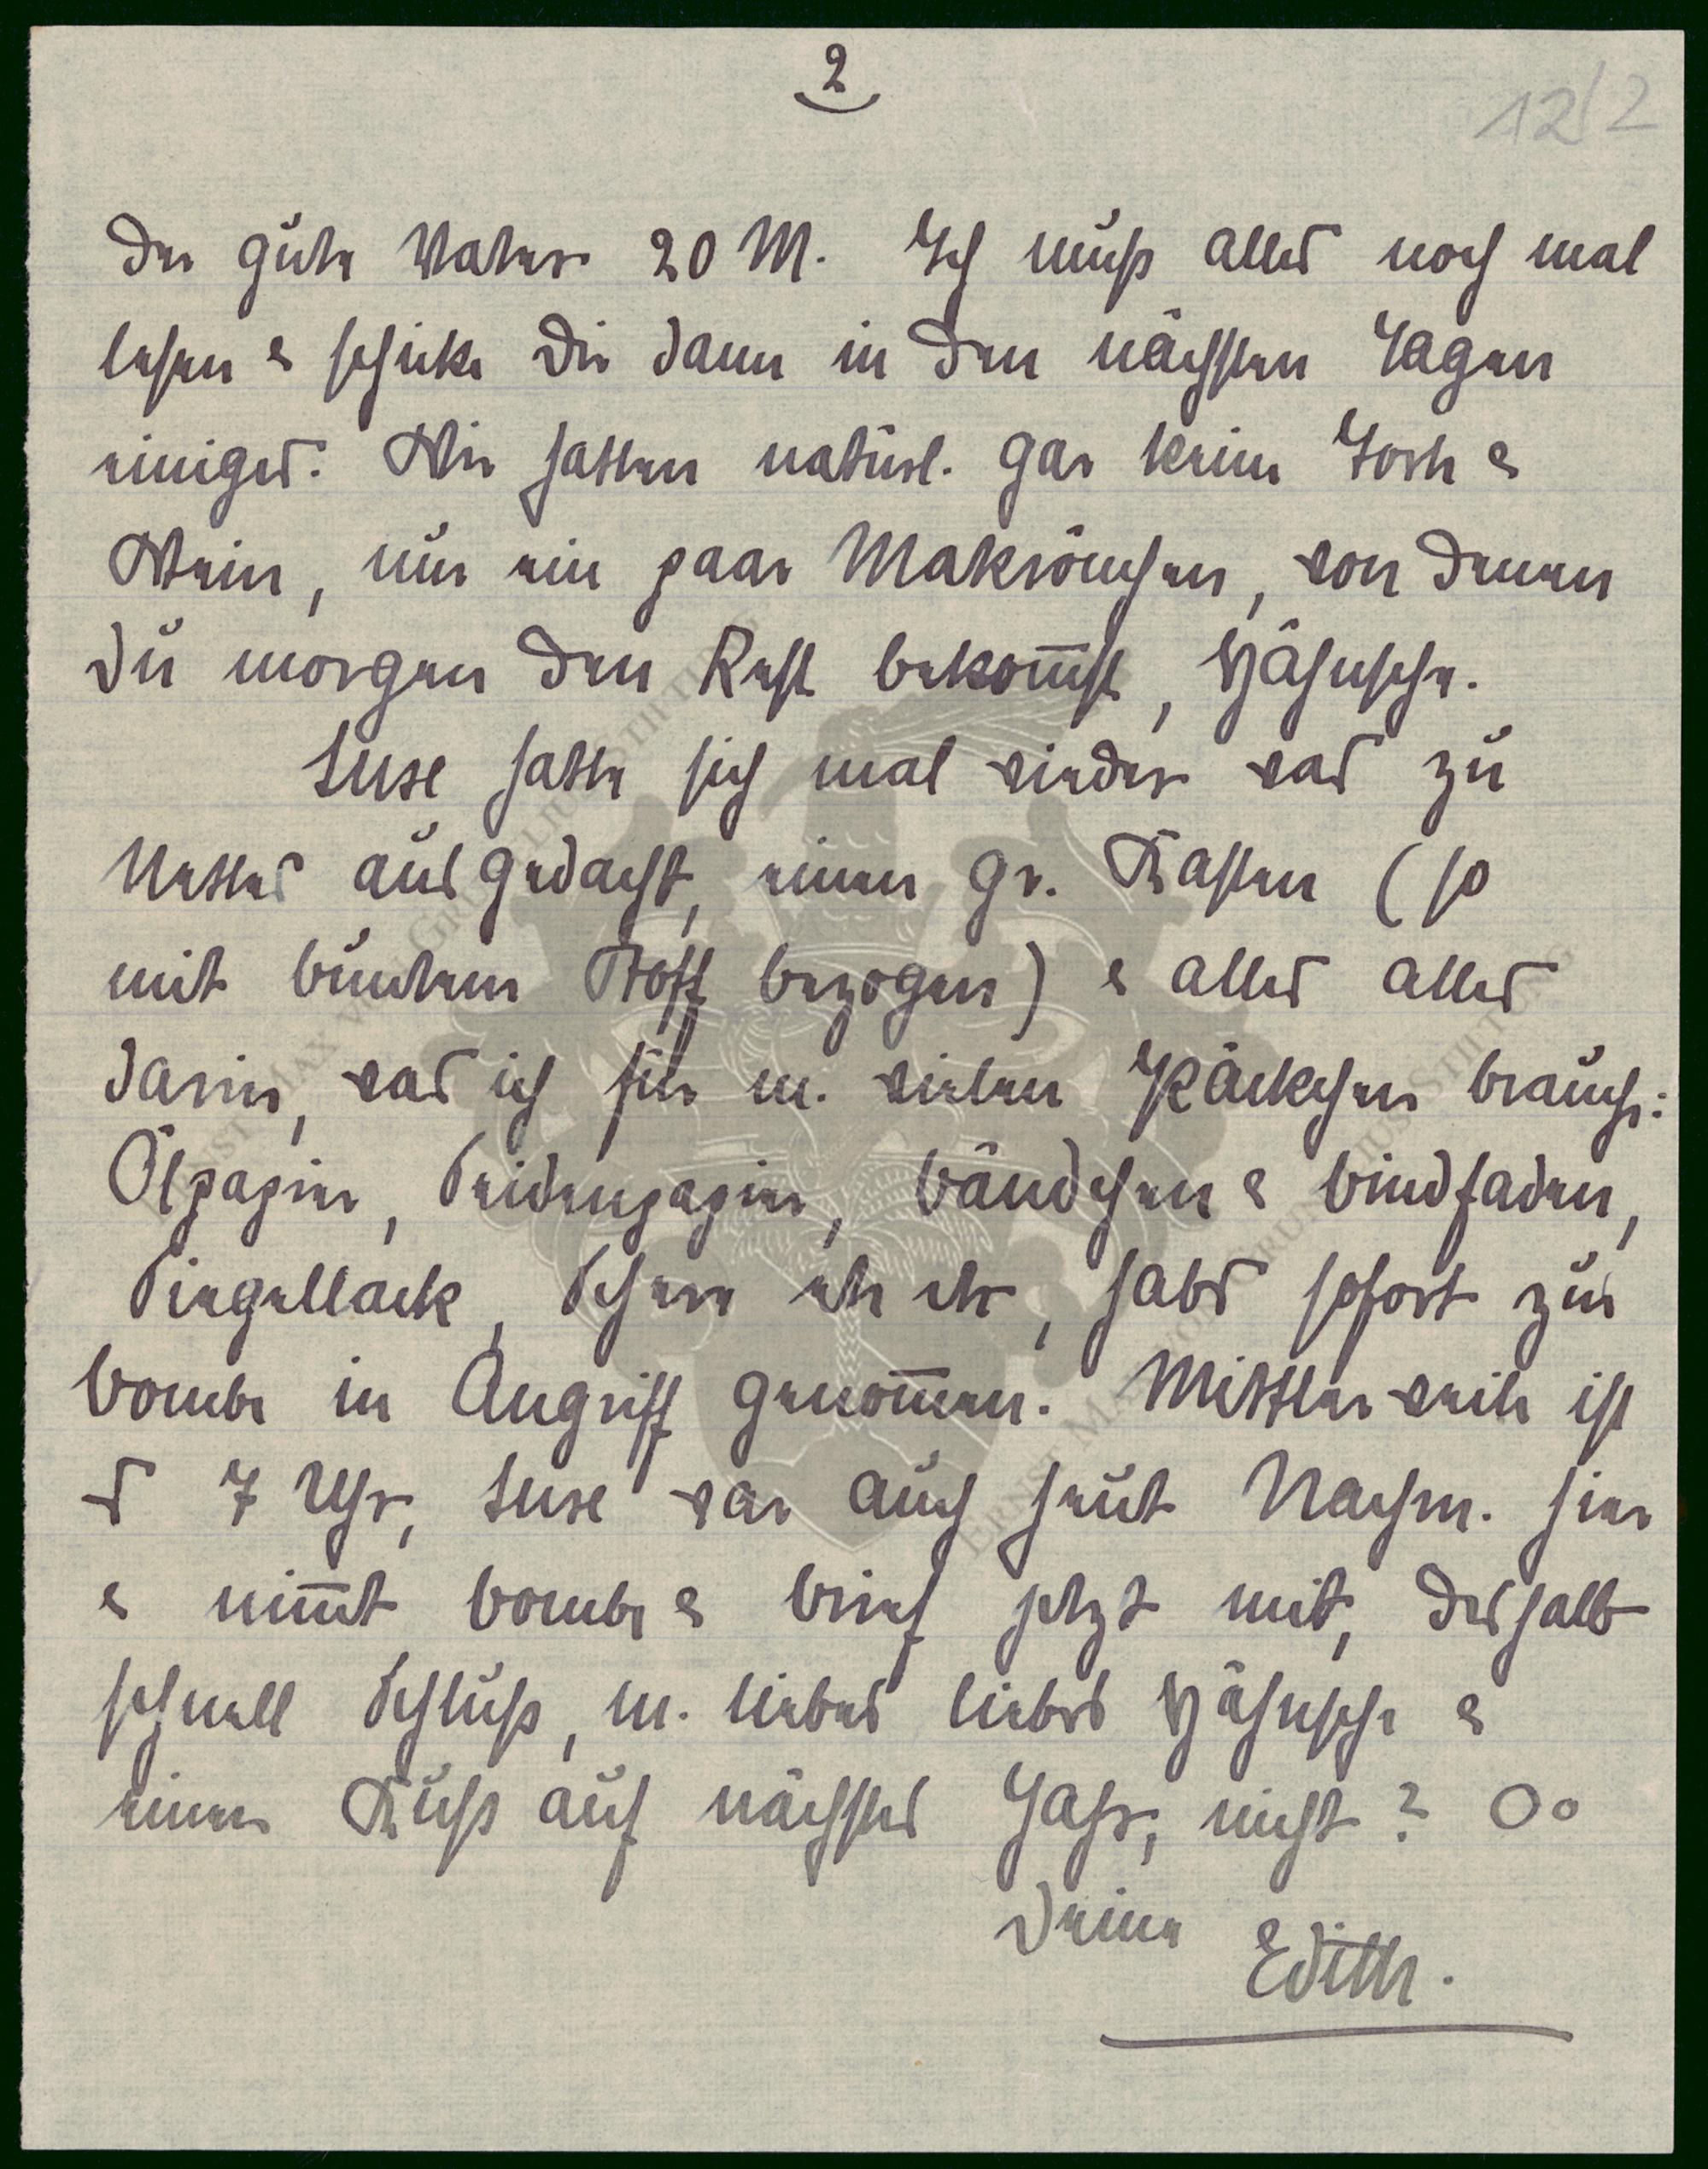 2
12/2
der gute Vater 20 M. Ich muß alles noch mal
lesen & schicke Dir dann in den nächsten Tagen
einiges. Wir hatten natürl. gar keine Torte &
Wein, nur ein paar Makrönchen, von denen
Du morgen den Rest bekom̅st, Hähnsche.
Suse hatte sich mal wieder was zu
Nettes ausgedacht, einen gr. Kasten (so
mit buntem Stoff bezogen) & alles alles
darin, was ich für m. vielen Päckchen brauche:
Ölpapier, Seidenpapier, Bändchen & Bindfaden,
Siegellack, Schere etc etc, habs sofort zur
Bombe in Angriff genom̅en. Mittlerweile ist
s 7 Uhr, Suse war auch heut Nachm. hier
& nim̅t Bombe & Brief jetzt mit, deshalb
schnell Schluß, m. liebes liebes Hähnsche &
einen Kuß auf nächstes Jahr, nicht? Oo
Deine
Edith.
ERNST MAX VON GRUNELIUS-STIFTUNG
ERNST MAX VON GRUNELIUS-STIFTUNG